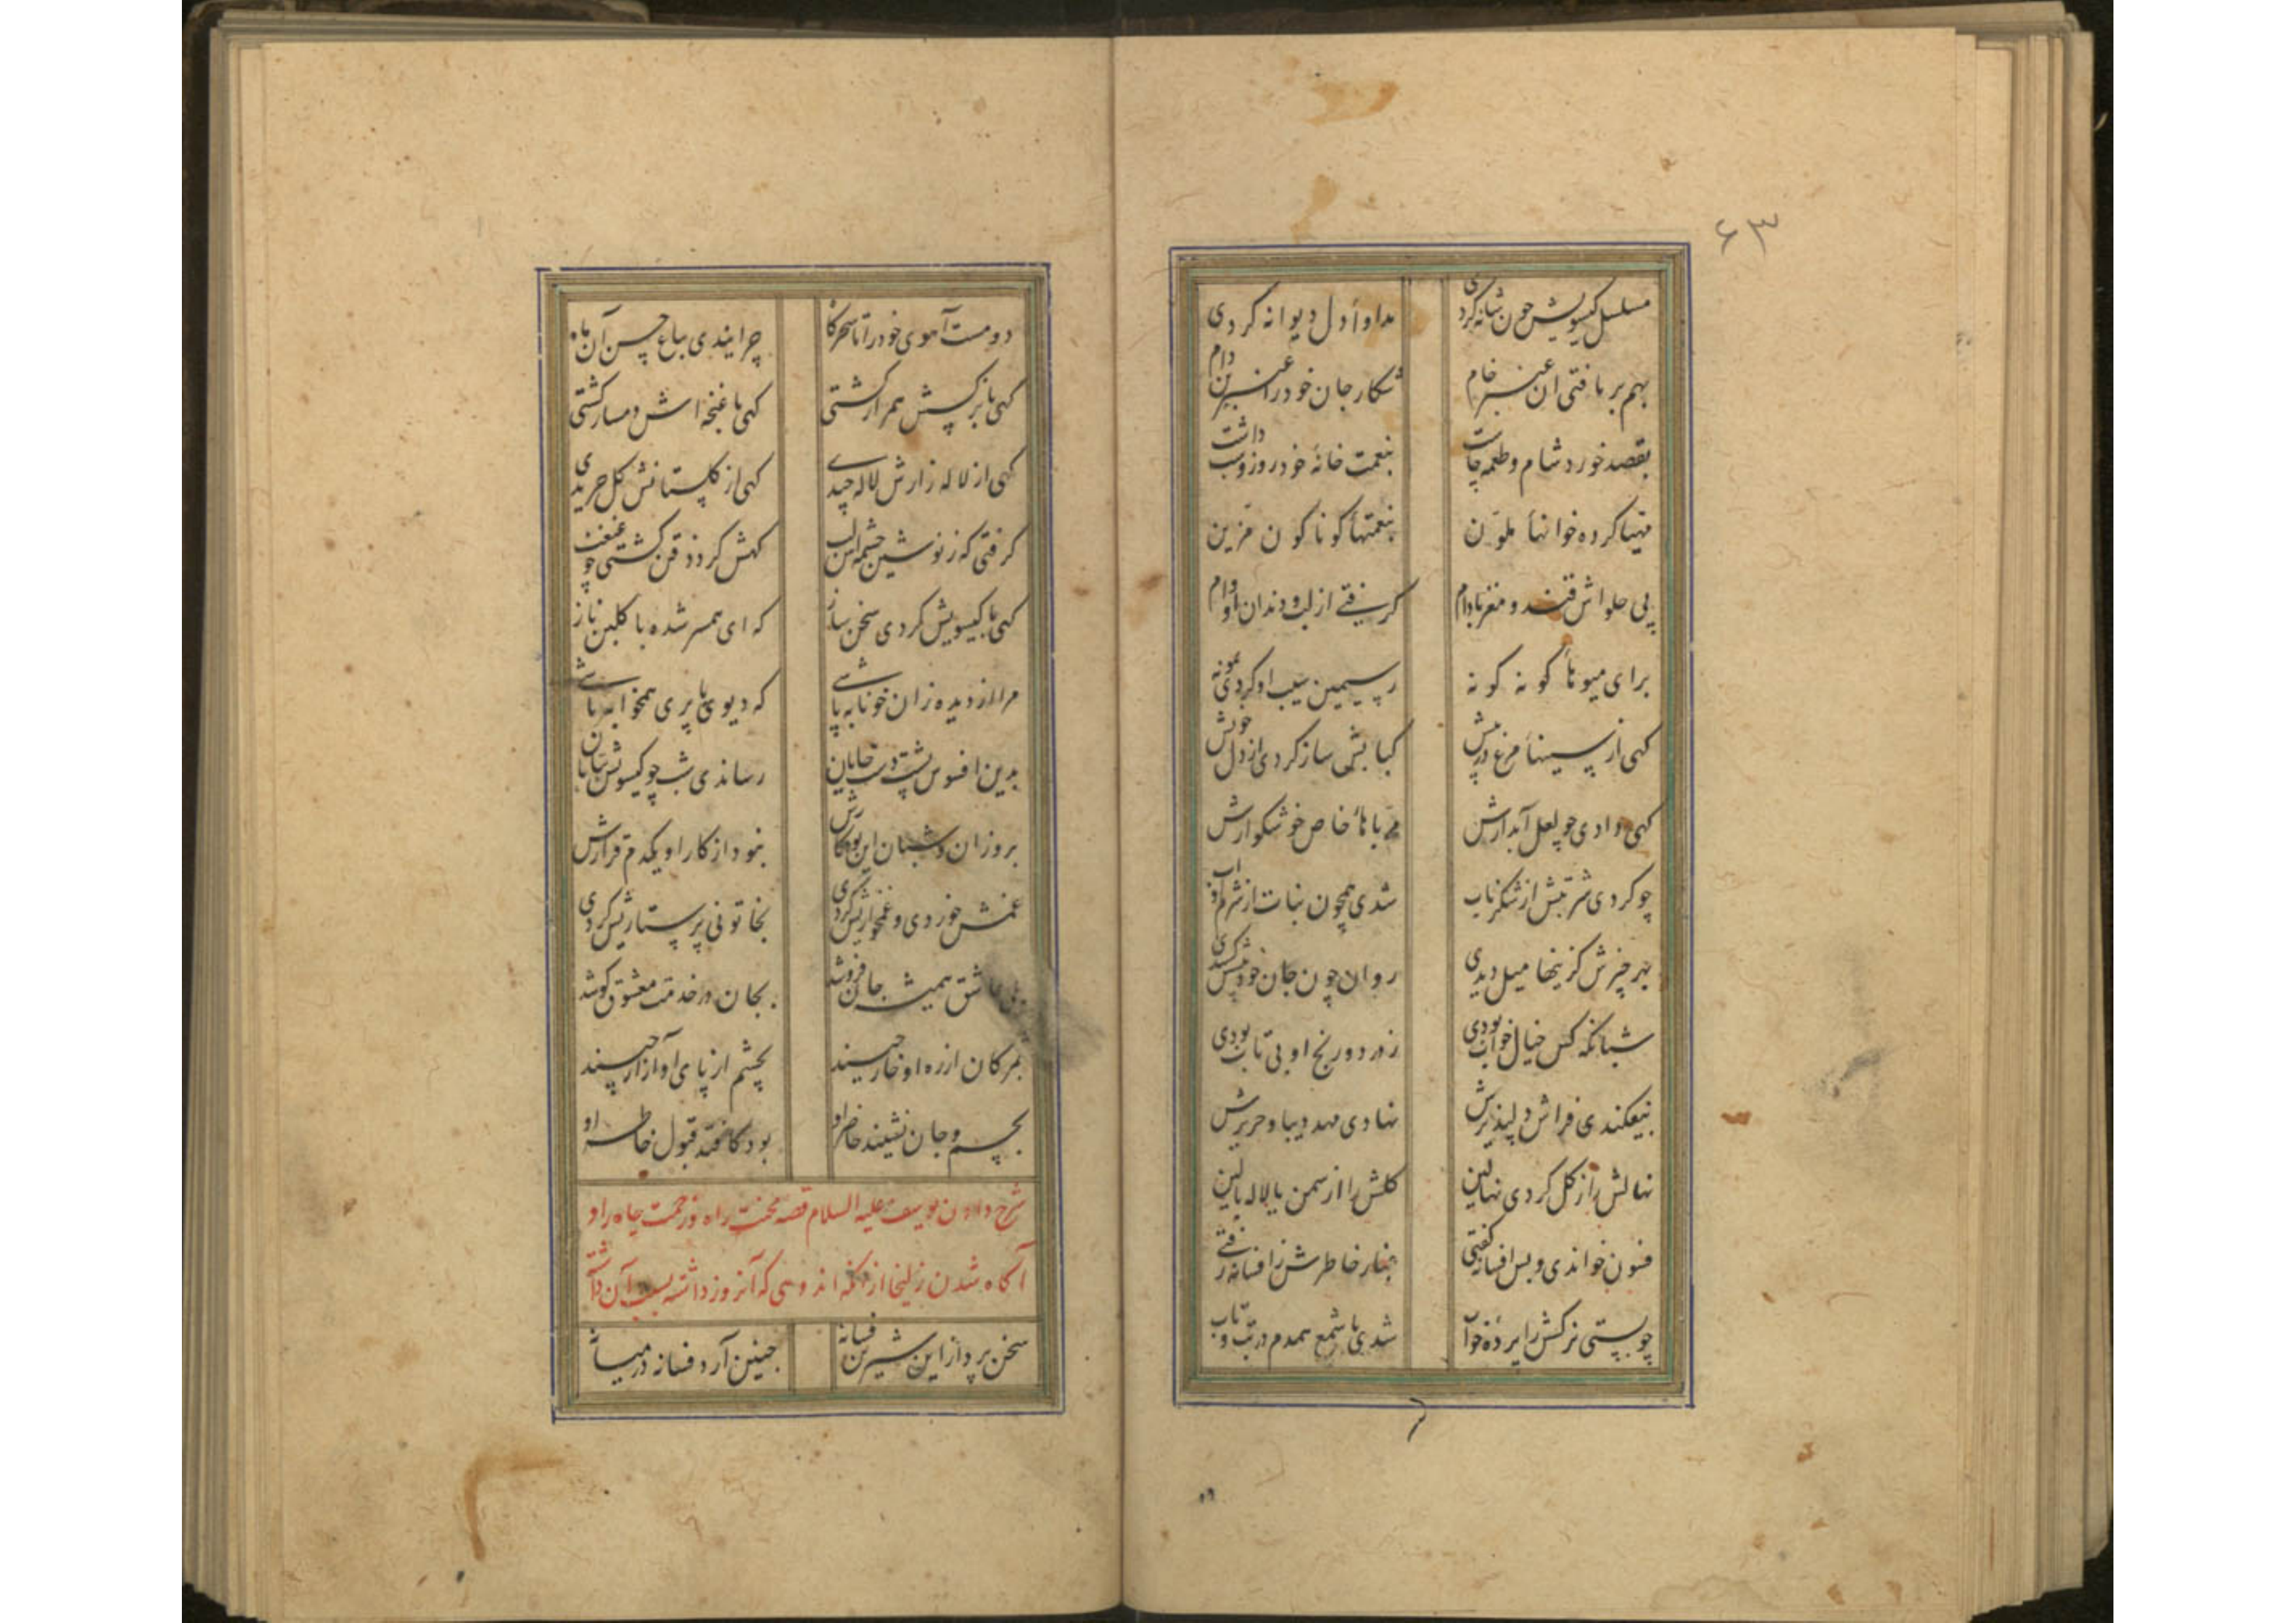 ۶۳
مسلسل گیسویش چون شانه کردی
مداوا دل دیوانه کردی
بهم بر بافتی ان عنبرین خام
شکار جان خود را عنبرین دام
بقصد خورد شام و طعمه چاشت
بنعمت خانه خود روز و شب داشت
مهیا کرده خوانها ملون
بنعمتها کوناکون مزین
پی حلواش قند و مغز بادام
کرفتی از لب و دندان او وام
برای میوها کونه کونه
ز سیمین سیب او کردی نمونه
کهی از سینها مرغ در پیش
کبابش ساز کردی از دل خویش
کهی دادی چو لعل آبدارش
مرباها خاص خوشکوارش
چو کردی شربتش از شکر ناب
شدی همچون نبات از شرم او آب
بهر چیزش کزینها میل دیدی
روان چون جان خود پیشش کشیدی
شبانکه کش خیال خواب بودی
ز درد و رنج او بی تاب بودی
بیفکندی فراش دلپذیرش
نهادی مهد دیبا و حریرش
نهالش را ز کل کردی نهالین
کلش را از سمن یا لاله بالین
فسون خواندی و بس افسانه کفتی
غبار خاطرش ز افسانه رفتی
چو بستی نرکسش را پرده خواب
شدی با شمع همدم در تب و تاب
دو مست آهوی خود را تا سحرکاه
چرانیدی بباغ حسن آن ماه
کهی با نرکسش همراز کشتی
کهی با غنچه اش دمساز کشتی
کهی از لاله زارش لاله چیدی
کهی از کلستانش کل خریدی
کرفتی که ز نوشین چشمه اش لب
کهش کرد ذقن کشتی چو غبغب
کهی با کیسویش کردی سخن ساز
که ای همسر شده با کلبن ناز
مرا از دیده زان خونابه پاشی
که دیوی با پری همخوابه باشی
بدین افسوس پشت دست خایان
رساندی شب چو کیسویش بپایان
بروزان و شبان این بود کارش
نبود از کار او یکدم قرارش
غمش خوردی و غمخواریش کردی
بخاتونی پرستاریش کردی
بلی عاشق همیشه جان فروشد
بجان در خدمت معشوق کوشد
بمژکان از ره او خار چیند
بچشم از پای او آزار چیند
بچشم و جان نشیند حاضر او
بود کافتد قبول خاطر او
شرح دادن یوسف علیه السلام قصه محنت راه و زحمت چاه را و
آکاه شدن زلیخا از آنکه اندوهی که آنروز داشته بسبب آن داشت
سخن پرداز این شیرین فسانه
چنین آرد فسانه در میانه